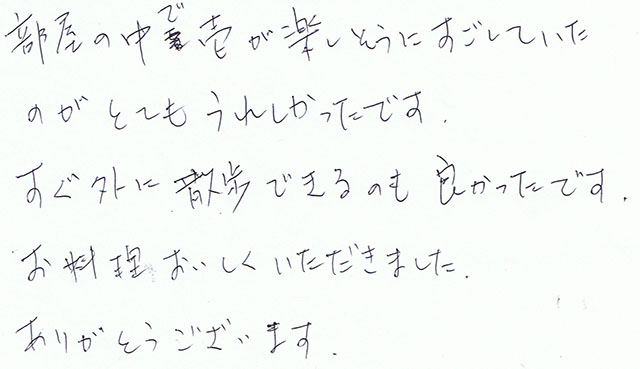 部屋の中で壱が楽しそうにすごしていた
のがとてもうれしかったです.
すぐ外に散歩できるのも良かったです.
お料理おいしくいただきました.
ありがとうございます.